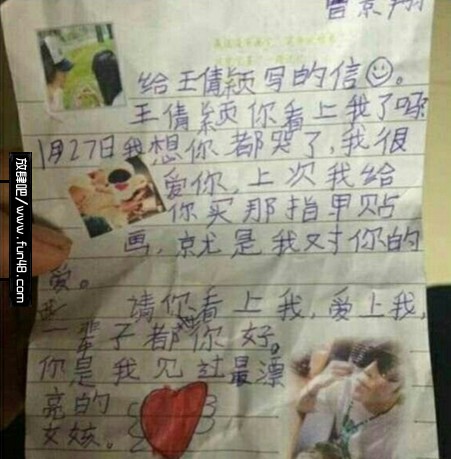 曾景翔
给王倩颖写的信。
王倩颖你看上我了吗
1月27日我想你都哭了,我很
爱你,上次我给
你买那指甲贴
画,就尤是我对你的
爱。
请你看上我,爱上我,
一辈子都你好。
你是我见过最漂
亮的
女孩。
放肆吧/www.fun48.com